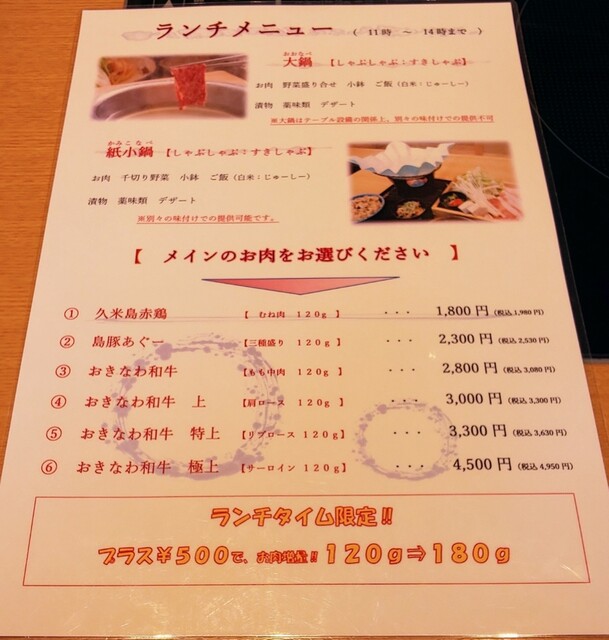 ランチメニュー （ 11時 ～ 14時まで ）
おおなべ
大鍋 【しゃぶしゃぶ：すきしゃぶ】
お肉 野菜盛り合せ 小鉢 ご飯（白米：じゅーしー）
漬物 薬味類 デザート
※大鍋はテーブル設備の関係上、別々の味付けでの提供不可
かみこなべ
紙小鍋 【しゃぶしゃぶ：すきしゃぶ】
お肉 千切り野菜 小鉢 ご飯（白米：じゅーしー）
漬物 薬味類 デザート
※別々の味付けでの提供可能です。
【 メインのお肉をお選びください 】
① 久米島赤鶏 【 むね肉 120g 】 ・・・ 1,800円（税込1,980円）
② 島豚あぐー 【三種盛り 120g 】 ・・・ 2,300円（税込2,530円）
③ おきなわ和牛 【もも中肉 120g 】 ・・・ 2,800円（税込3,080円）
④ おきなわ和牛 上 【肩ロース 120g 】 ・・・ 3,000円（税込3,300円）
⑤ おきなわ和牛 特上 【リブロース 120g】 ・・・ 3,300円（税込3,630円）
⑥ おきなわ和牛 極上 【サーロイン 120g】 ・・・ 4,500円（税込4,950円）
ランチタイム限定!!
プラス¥500で、お肉増量!! 120g⇒180g